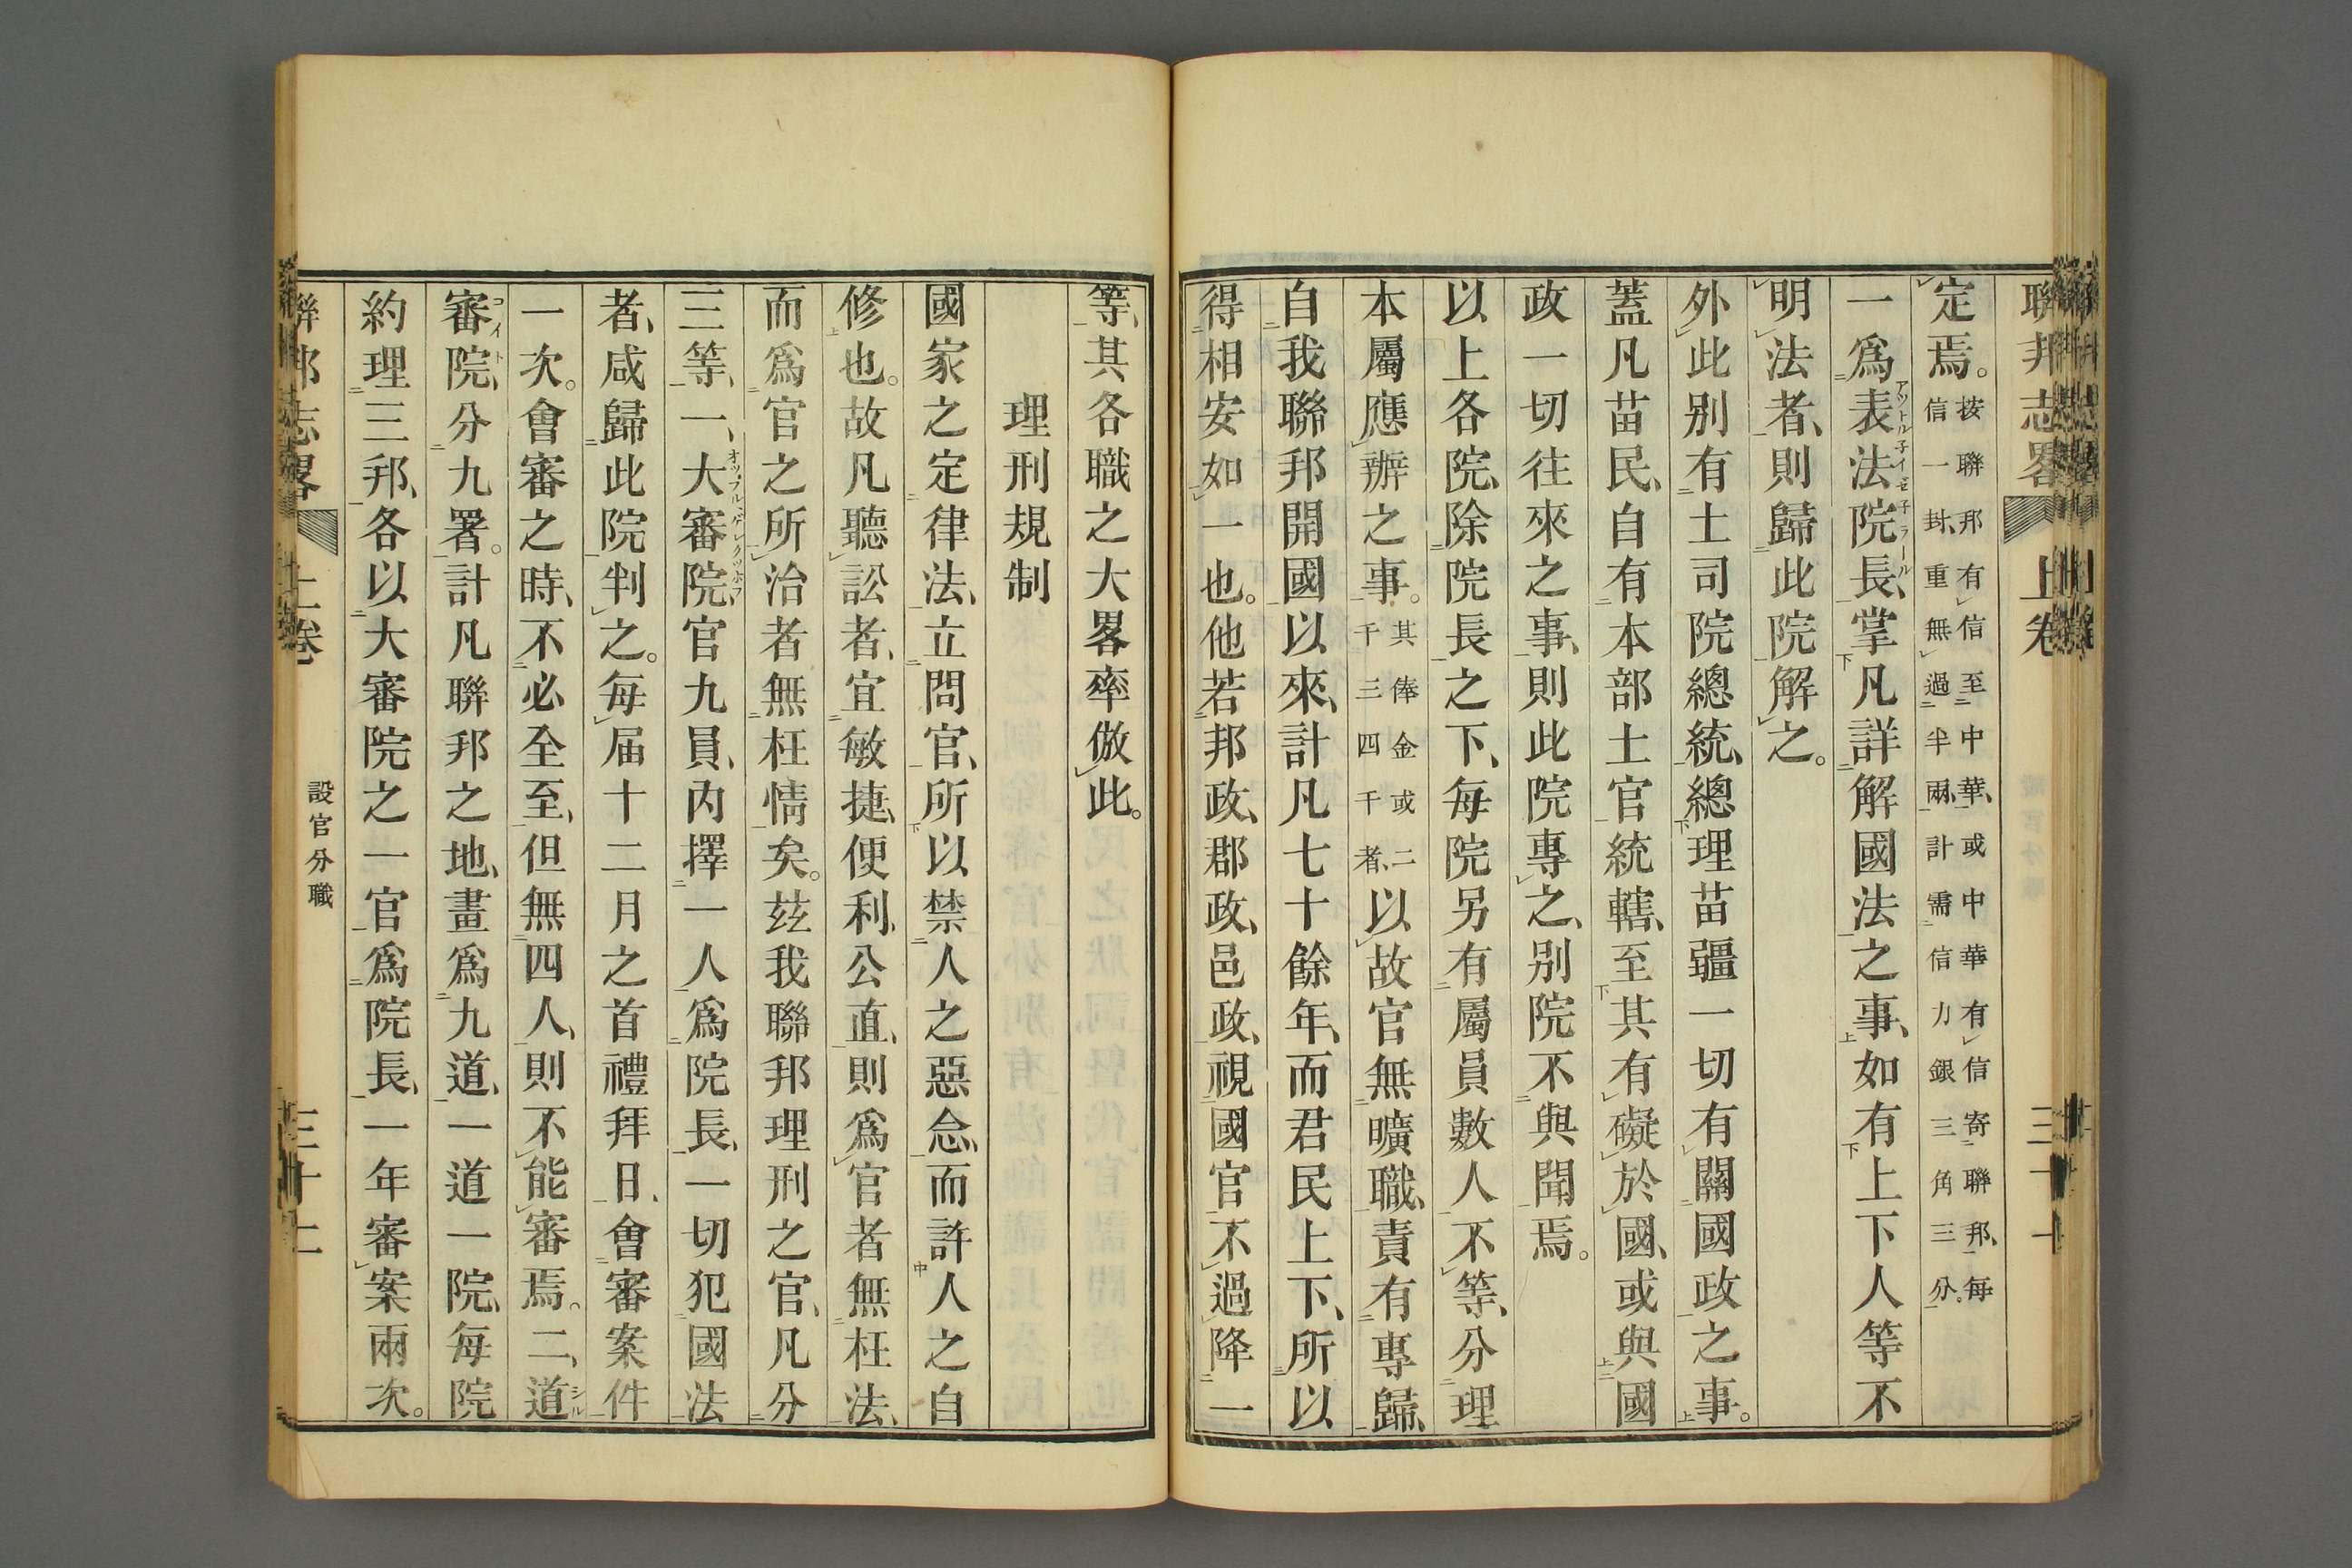 聯邦志畧 上卷
定焉。按聯邦有信至中華、或中華有信寄聯邦、每
信一封、重無過半兩、計需信力銀三角三分。
一爲表法院長、掌凡詳解國法之事、如有上下人等不
アットル子イゼ子ラール
明法者、則歸此院解之。
外此別有土司院總統、總理苗疆一切有關國政之事。
蓋凡苗民、自有本部土官統轄、至其有礙於國、或與國
政一切往來之事、則此院專之、別院不與聞焉。
以上各院、除院長之下、每院另有屬員數人不等、分理
本屬應辦之事。其俸金或二
千三四千者、以故官無曠職、責有專歸、
自我聯邦開國以來、計凡七十餘年、而君民上下、所以
得相安如一也。他若邦政、郡政、邑政、視國官不過降一
等、其各職之大畧率倣此。
理刑規制
國家之定律法、立問官、所以禁人之惡念、而許人之自
修也。故凡聽訟者、宜敏捷、便利、公直、則爲官者無枉法、
而爲官之所治者無枉情矣。玆我聯邦理刑之官、凡分
三等、一、大審院、官九員、內擇一人爲院長、一切犯國法
者、咸歸此院判之。每屆十二月之首禮拜日、會審案件
一次。會審之時、不必全至、但無四人、則不能審焉。二、道
審院、分九署。計凡聯邦之地、畫爲九道、一道一院、每院
約理三邦、各以大審院之一官爲院長、一年審案兩次。
聯邦志畧 上卷 設官分職 三十二